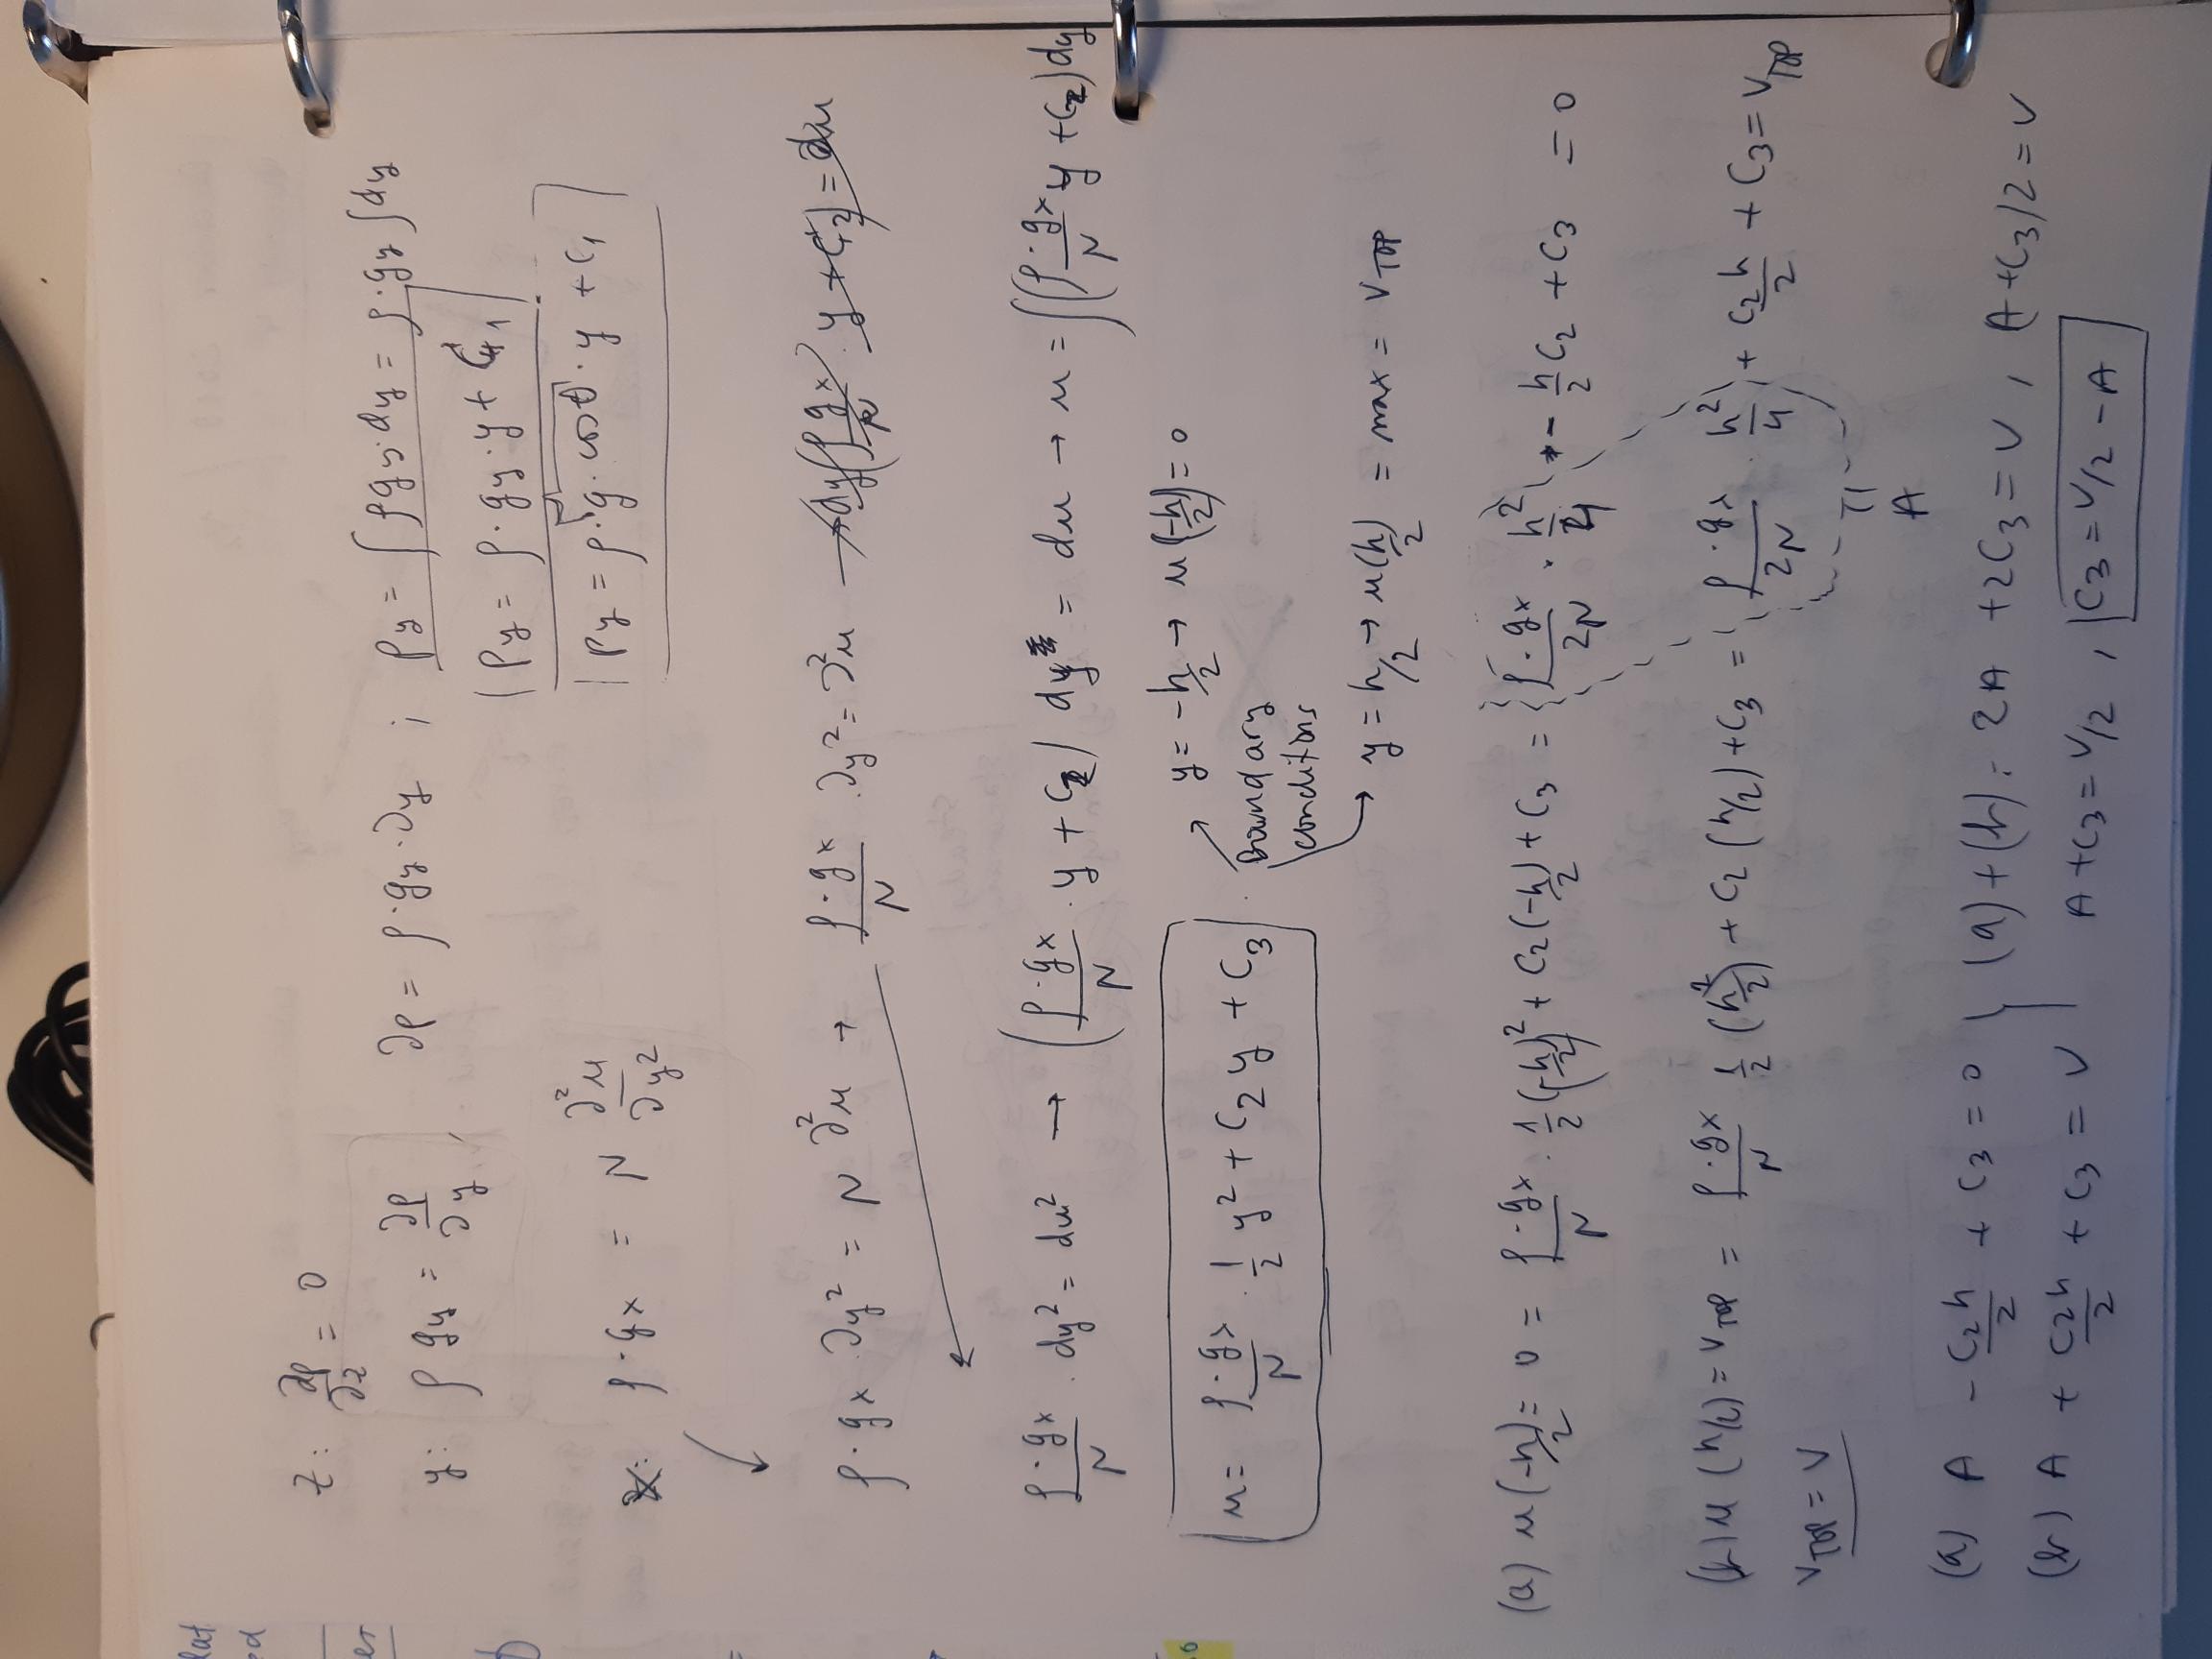 lat
ed
er
z: ∂p/∂z = 0
y: ρ gy = ∂p/∂y , ∂p = ρ·gy·∂y ; Py = ∫ρgy·dy = ρ·gy∫dy
Py = ρ·gy·y + C1
Py = ρ·g·cosθ·y + C1
x: ρ·gx = μ ∂²u/∂y²
ρ·gx ∂y² = μ ∂²u → ρ·gx/μ · ∂y² = ∂²u → dy(ρgx/μ · y + C2) = du
ρ·gx/μ · dy² = du² → (ρ·gx/μ · y + C2) dy = du → u = ∫(ρ·gx/μ y + C2)dy
y = -h/2 → u(-h/2) = 0
u = ρ·gx/μ · 1/2 y² + C2 y + C3 .
Boundary
conditions
y = h/2 → u(h/2) = max = VTOP
(a) u(-h/2) = 0 = ρ·gx/μ · 1/2(-h/2)² + C2(-h/2) + C3 = ρ·gx/2μ · h²/4 - h/2 C2 + C3 = 0
(b) u(h/2) = VTOP = ρ·gx/μ 1/2 (h/2)² + C2(h/2) + C3 = ρ·gx/2μ · h²/4 + C2h/2 + C3 = VTOP
VTOP = V
A
(a) A - C2h/2 + C3 = 0 (a)+(b): 2A + 2C3 = V , A+C3/2 = V
(b) A + C2h/2 + C3 = V A + C3 = V/2 , C3 = V/2 - A